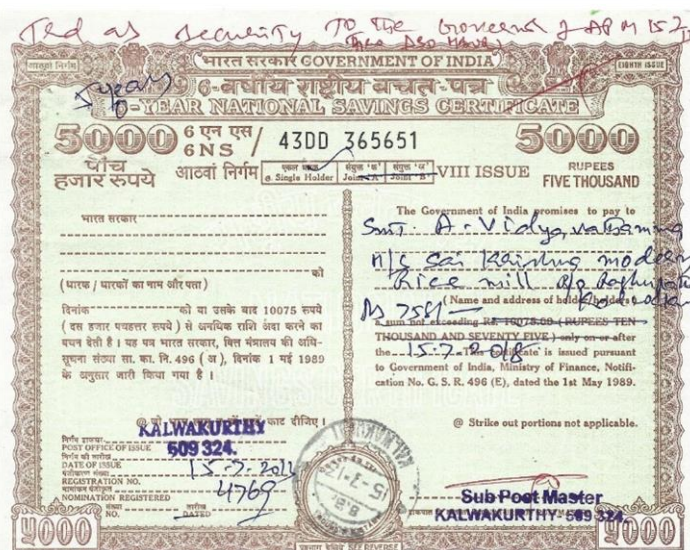 as security to the
भारत सरकार GOVERNMENT OF INDIA
EIGHTH ISSUE
5 years
6-वर्षीय राष्ट्रीय बचत-पत्र
6-YEAR NATIONAL SAVINGS CERTIFICATE
5000 6 एन एस / 6NS 43DD 365651 5000
पाँच हजार रुपये
आठवां निर्गम
@ Single Holder
VIII ISSUE
RUPEES
FIVE THOUSAND
भारत सरकार
को
(धारक / धारकों का नाम और पता)
दिनांक को या उसके बाद 10075 रुपये
(दस हजार पचहत्तर रुपये) से अनधिक राशि अदा करने का
वचन देती है। यह पत्र भारत सरकार, वित्त मंत्रालय की अधि-
सूचना संख्या सा. का. नि. 496 (अ), दिनांक 1 मई 1989
के अनुसार जारी किया गया है।
काट दीजिए।
The Government of India promises to pay to
Smt. A. Vidyavathamma
Sai Krishna modern
Rice mill
Rs 7581/-
(Name and address of holder/holders)
a sum not exceeding Rs. 10075.00 (RUPEES TEN
THOUSAND AND SEVENTY FIVE) only on or after
the 15-7-2018 This certificate is issued pursuant
to Government of India, Ministry of Finance, Notifi-
cation No. G. S. R. 496 (E), dated the 1st May 1989.
@ Strike out portions not applicable.
KALWAKURTHY
509 324.
POST OFFICE OF ISSUE
DATE OF ISSUE
REGISTRATION NO. 4769
NOMINATION REGISTERED
संख्या
NO.
तारीख
DATED
Sub Post Master
KALWAKURTHY-509 324.
५000
५000